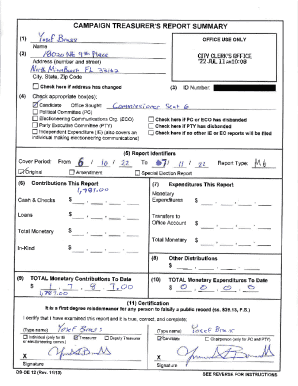 CAMPAIGN TREASURER'S REPORT SUMMARY
(1) Yosef Brows
Name
OFFICE USE ONLY
(2)
Address (number and street)
CITY CLERK'S OFFICE
'22 JUL 11 AM 10:08
North Miami Beach FL 33162
City, State, Zip Code
Check here if address has changed
(3) ID Number:
(4) Check appropriate box(es):
Candidate Office Sought: Commissioner Seat 6
Political Committee (PC)
Electioneering Communications Org. (ECO)
Check here if PC or ECO has disbanded
Party Executive Committee (PTY)
Check here if PTY has disbanded
Independent Expenditure (IE) (also covers an individual making electioneering communications)
Check here if no other IE or EC reports will be filed
(5) Report Identifiers
Cover Period: From 6 / 10 / 22 To 07 / 11 / 22 Report Type: M6
Original Amendment Special Election Report
(6) Contributions This Report
(7) Expenditures This Report
1,789.00
Cash & Checks $
Monetary Expenditures $
Loans $
Transfers to Office Account $
Total Monetary $
Total Monetary $
In-Kind $
(8) Other Distributions
$
(9) TOTAL Monetary Contributions To Date
(10) TOTAL Monetary Expenditures To Date
$ 1,789.00
$ 0 0 0 0
1,789.00
(11) Certification
It is a first degree misdemeanor for any person to falsify a public record (ss. 839.13, F.S.)
I certify that I have examined this report and it is true, correct, and complete:
(Type name) Yosef Brows
(Type name) Yosef Brows
Individual (only for IE or electioneering comm.) Treasurer Deputy Treasurer
Candidate Chairperson (only for PC and PTY)
X
X
Signature
Signature
DS-DE 12 (Rev. 11/13)
SEE REVERSE FOR INSTRUCTIONS